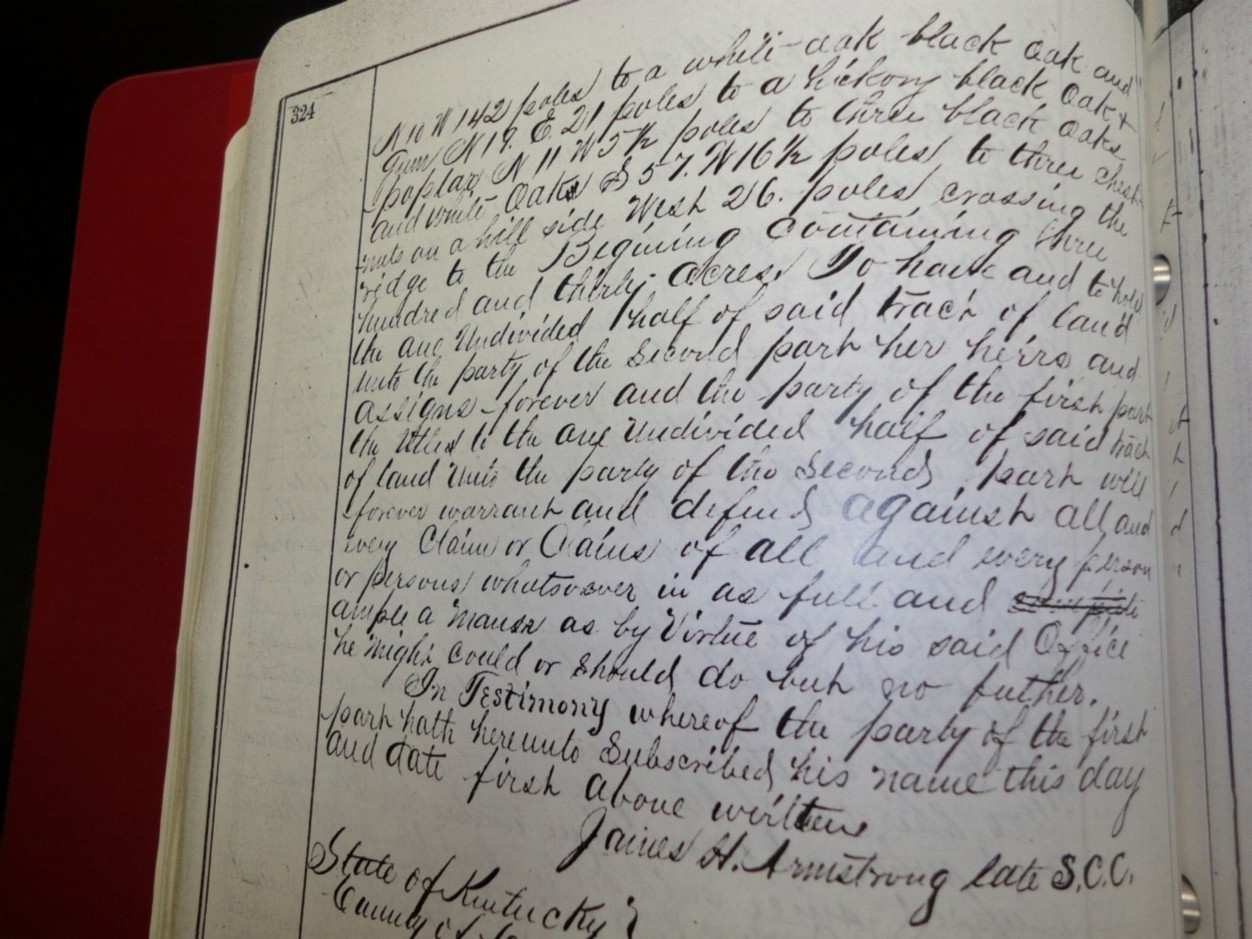 324
N 10 W 142 poles to a white-oak black oak and
Gum N 19. E. 21 poles to a hickory black oak &
poplar N 11 W 5½ poles to three black oaks
and white-Oaks S 57. W 16½ poles to three chest
nuts on a hill side West 26. poles crossing the
ridge to the Begining containing three
hundred and thirty acres To have and to hold
the one Undivided half of said tract of land
unto the party of the Second part her heirs and
assigns forever and the party of the first part
the titles to the one Undivided half of said tract
of land unto the party of the Second part will
forever warrant and defend against all and
every Claim or Claims of all and every person
or persons whatsoever in as full and
ample a manner as by Virtue of his said Office
he might could or should do but no futher.
In Testimony whereof the party of the first
part hath hereunto Subscribed his name this day
and date first above written
James H. Armstrong late S.C.C.
State of Kentucky
County of